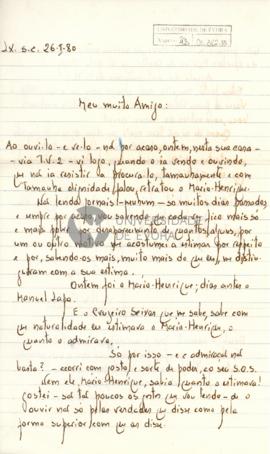 Lx. s.c. 26-I-80
UNIVERSIDADE DE ÉVORA
Meu muito Amigo:
Ao ouvi-lo - e ve-lo - não por acaso, ontem, nesta sua casa -
- via T.V.2 - vi logo, quando o ia vendo e ouvindo,
que não ia resistir a procurá-lo, tamanhamente e com
tamanha dignidade falou, retratou o Mario-Henrique.
Não lendo jornais! - nenhum - só muitos dias passados
e sempre por acaso vou sabendo de cada vez mais só
e mais pobre por desaparecimento de
um ou outro que me acostumei a estimar por respeito
e por, sabendo-os mais, muito mais do que eu, me distin-
guiram com a sua estima.
Ontem foi o Mario-Henrique; dias antes o
Manuel Lapa.
E o Cruzeiro Seixas que me sabe, sabe com
que naturalidade eu estimava o Mario-Henrique, o
quanto o admirava.
Só por isso - e é admiração não
basta? - acorri com gosto e sorte de poder, ao seu S.O.S.
Nem ele, Mario-Henrique, sabia quanto o estimava!
Gostei - são tão poucos os que vou lendo - de o
ouvir não só pelas verdades que disse como pela
forma superior com que as disse.